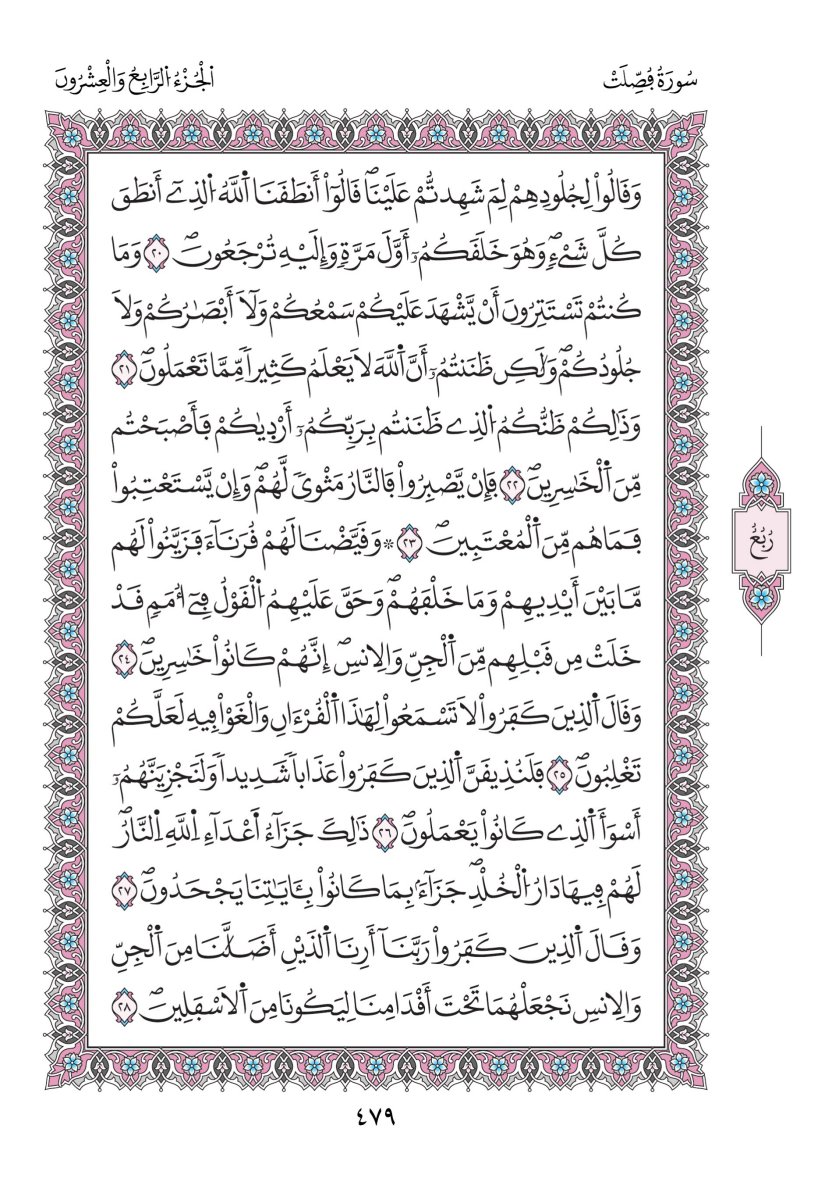 سُورَةُ فُصِّلَتْ
اَلْجُزْءُ اَلرَّابِعُ وَالْعِشْرُونَ
وَقَالُواْ لِجُلُودِهِمْ لِمَ شَهِدتُّمْ عَلَيْنَاۖ قَالُوٓاْ أَنطَقَنَا اَ۬للَّهُ اُ۬لذِےٓ أَنطَقَ
كُلَّ شَےْءٖۖ وَهُوَ خَلَقَكُمُۥٓ أَوَّلَ مَرَّةٖ وَإِلَيْهِ تُرْجَعُونَۖ ٢٠ وَمَا
كُنتُمْ تَسْتَتِرُونَ أَنْ يَّشْهَدَ عَلَيْكُمْ سَمْعُكُمْ وَلَآ أَبْصَٰرُكُمْ وَلَا
جُلُودُكُمْۖ وَلَٰكِن ظَنَنتُمُۥٓ أَنَّ اَ۬للَّهَ لَا يَعْلَمُ كَثِيراٗ مِّمَّا تَعْمَلُونَۖ ٢١
وَذَٰلِكُمْ ظَنُّكُمُ اُ۬لذِے ظَنَنتُم بِرَبِّكُمُۥٓ أَرْدِيٰكُمْ فَأَصْبَحْتُم
مِّنَ اَ۬لْخَٰسِرِينَۖ ٢٢ فَإِنْ يَّصْبِرُواْ فَالنَّارُ مَثْويٗ لَّهُمْۖ وَإِنْ يَّسْتَعْتِبُواْ
فَمَا هُم مِّنَ اَ۬لْمُعْتَبِينَۖ ٢٣ ۞ وَقَيَّضْنَا لَهُمْ قُرَنَآءَ فَزَيَّنُواْ لَهُم
مَّا بَيْنَ أَيْدِيهِمْ وَمَا خَلْفَهُمْۖ وَحَقَّ عَلَيْهِمُ اُ۬لْقَوْلُ فِےٓ أُمَمٖ قَدْ
خَلَتْ مِن قَبْلِهِم مِّنَ اَ۬لْجِنِّ وَالِانسِۖ إِنَّهُمْ كَانُواْ خَٰسِرِينَۖ ٢٤
وَقَالَ اَ۬لذِينَ كَفَرُواْ لَا تَسْمَعُواْ لِهَٰذَا اَ۬لْقُرْءَانِ وَالْغَوْاْ فِيهِ لَعَلَّكُمْ
تَغْلِبُونَۖ ٢٥ فَلَنُذِيقَنَّ اَ۬لذِينَ كَفَرُواْ عَذَاباٗ شَدِيداٗ وَلَنَجْزِيَنَّهُمُۥٓ
أَسْوَأَ اَ۬لذِے كَانُواْ يَعْمَلُونَۖ ٢٦ ذَٰلِكَ جَزَآءُ اَ۬عْدَآءِ اِ۬للَّهِ اِ۬لنَّارُۖ
لَهُمْ فِيهَا دَارُ اُ۬لْخُلْدِۖ جَزَآءَۢ بِمَا كَانُواْ بِـَٔايَٰتِنَا يَجْحَدُونَۖ ٢٧
وَقَالَ اَ۬لذِينَ كَفَرُواْ رَبَّنَآ أَرِنَا اَ۬لذَيْنِ أَضَلَّٰنَا مِنَ اَ۬لْجِنِّ
وَالِانسِ نَجْعَلْهُمَا تَحْتَ أَقْدَامِنَا لِيَكُونَا مِنَ اَ۬لَاسْفَلِينَۖ ٢٨
رُبُعُ
٤٧٩